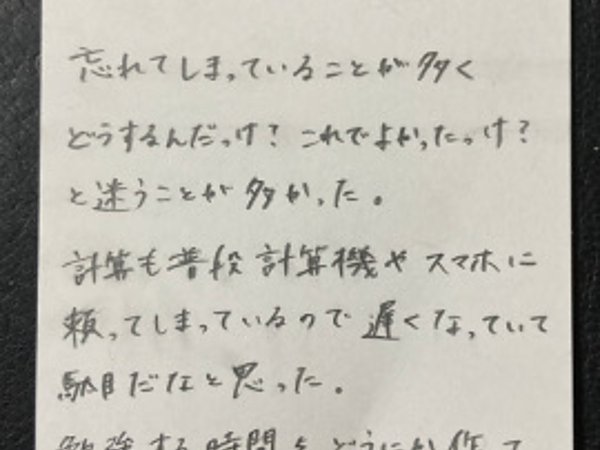 忘れてしまっていることが多く
どうするんだっけ? これでよかったっけ?
と迷うことが多かった。
計算も普段計算機やスマホに
頼ってしまっているので遅くなっていて
駄目だなと思った。
勉強する時間をどうにか作って